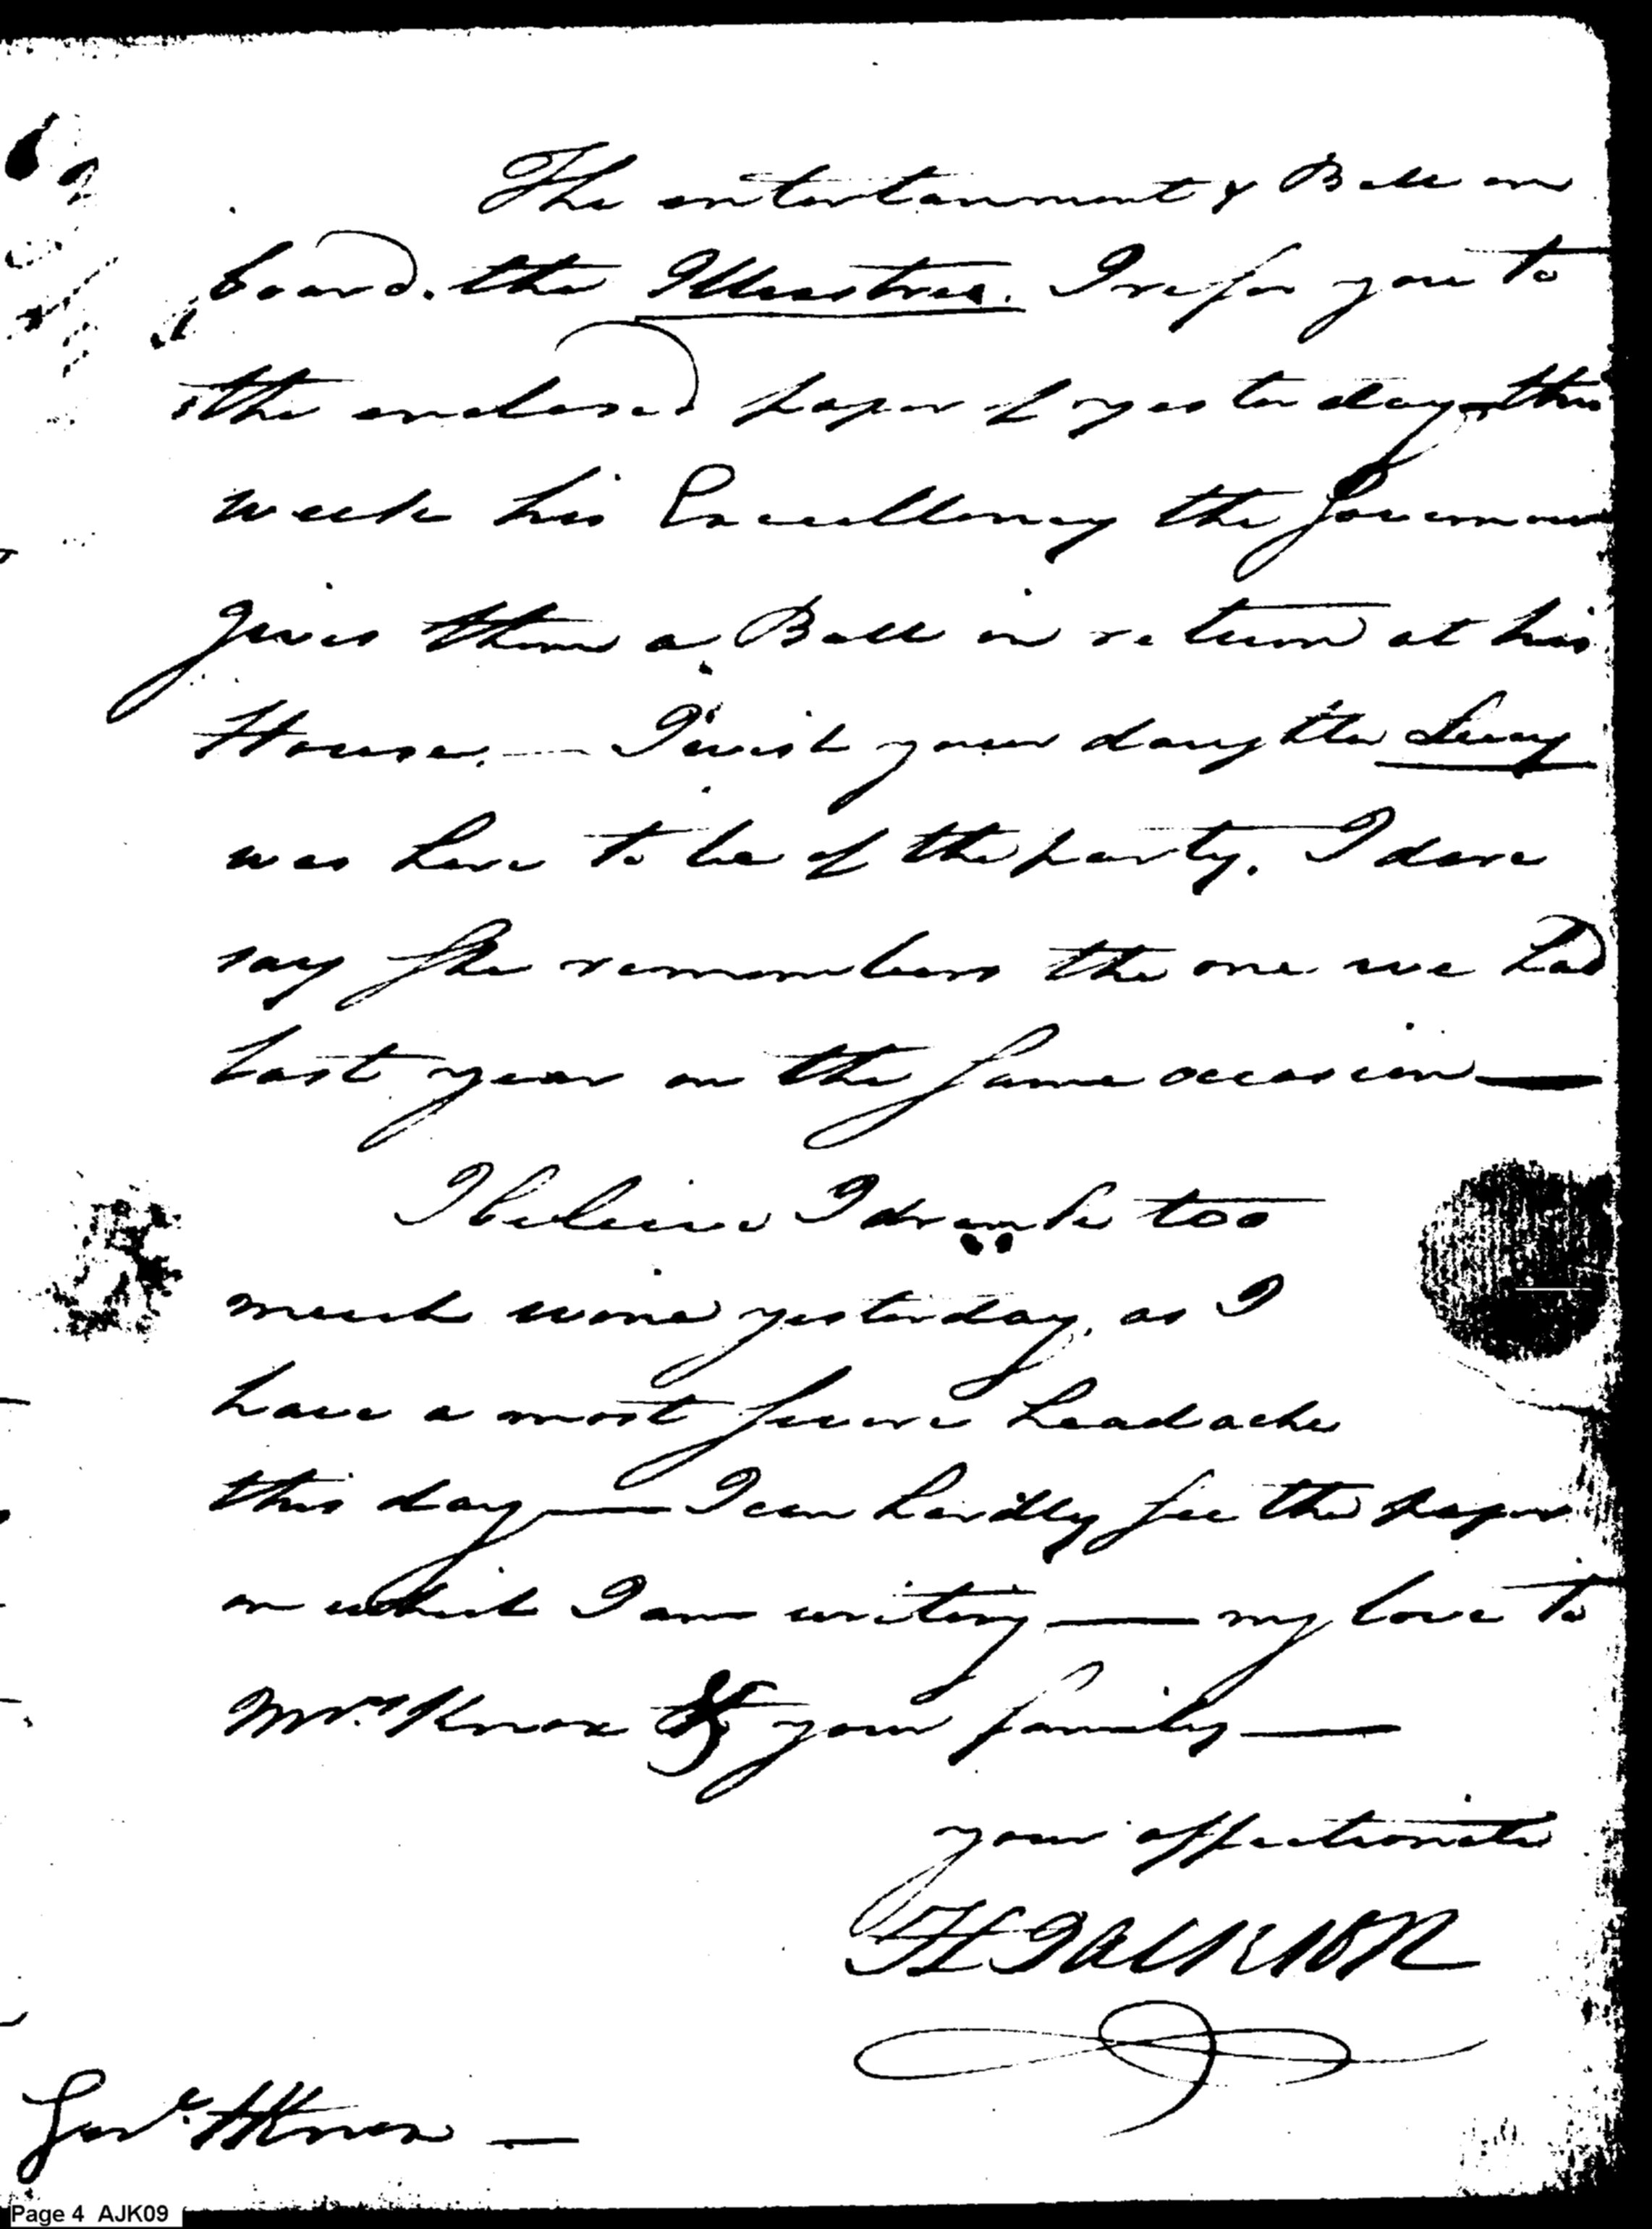 The entertainment & Ball on
board. the Illustres. I refer you to
the enclosed paper of yesterday - this
week his Excellency the Governour
gives them a Ball in return at his
House. — I wish your daughter Lucy
was here to be of the party. I dare
say She remembers the one we had
last year on the Same occasion —
I believe I drank too
much wine yesterday, as I
have a most Severe headache
this day — I can hardly See the paper
on which I am writing — my love to
Mrs. Knox & your family —
your affectionate
H JACKSON
Genl. HKnox —
Page 4 AJK09